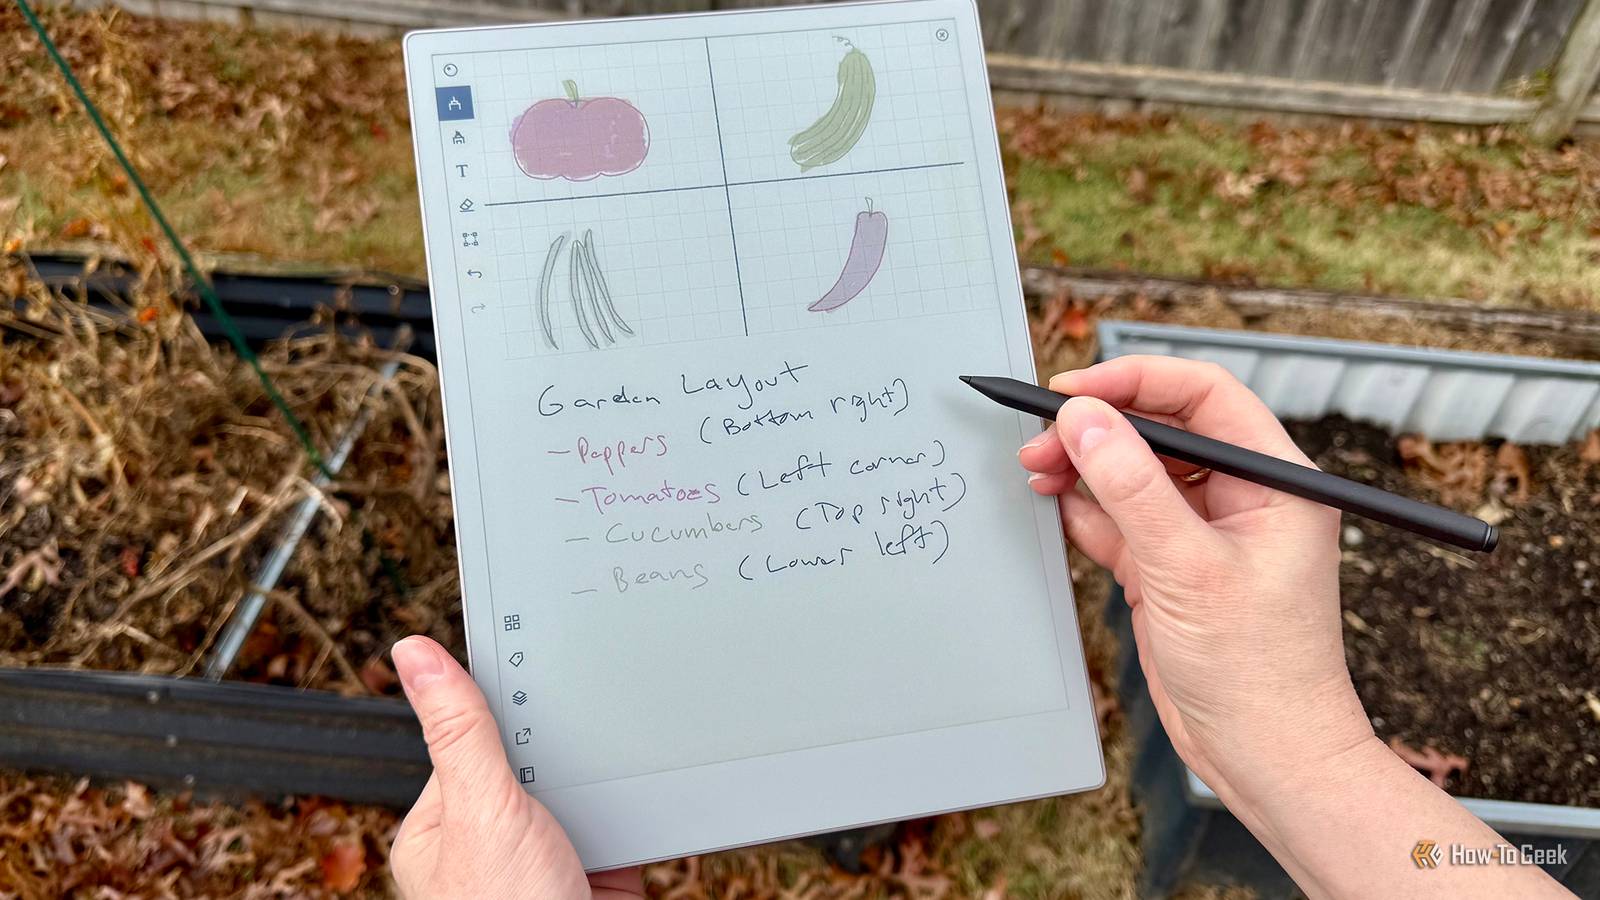 T
Garden Layout
- Peppers (Bottom right)
- Tomatoes (Left corner)
- Cucumbers (Top right)
- Beans (Lower left)
How-To Geek